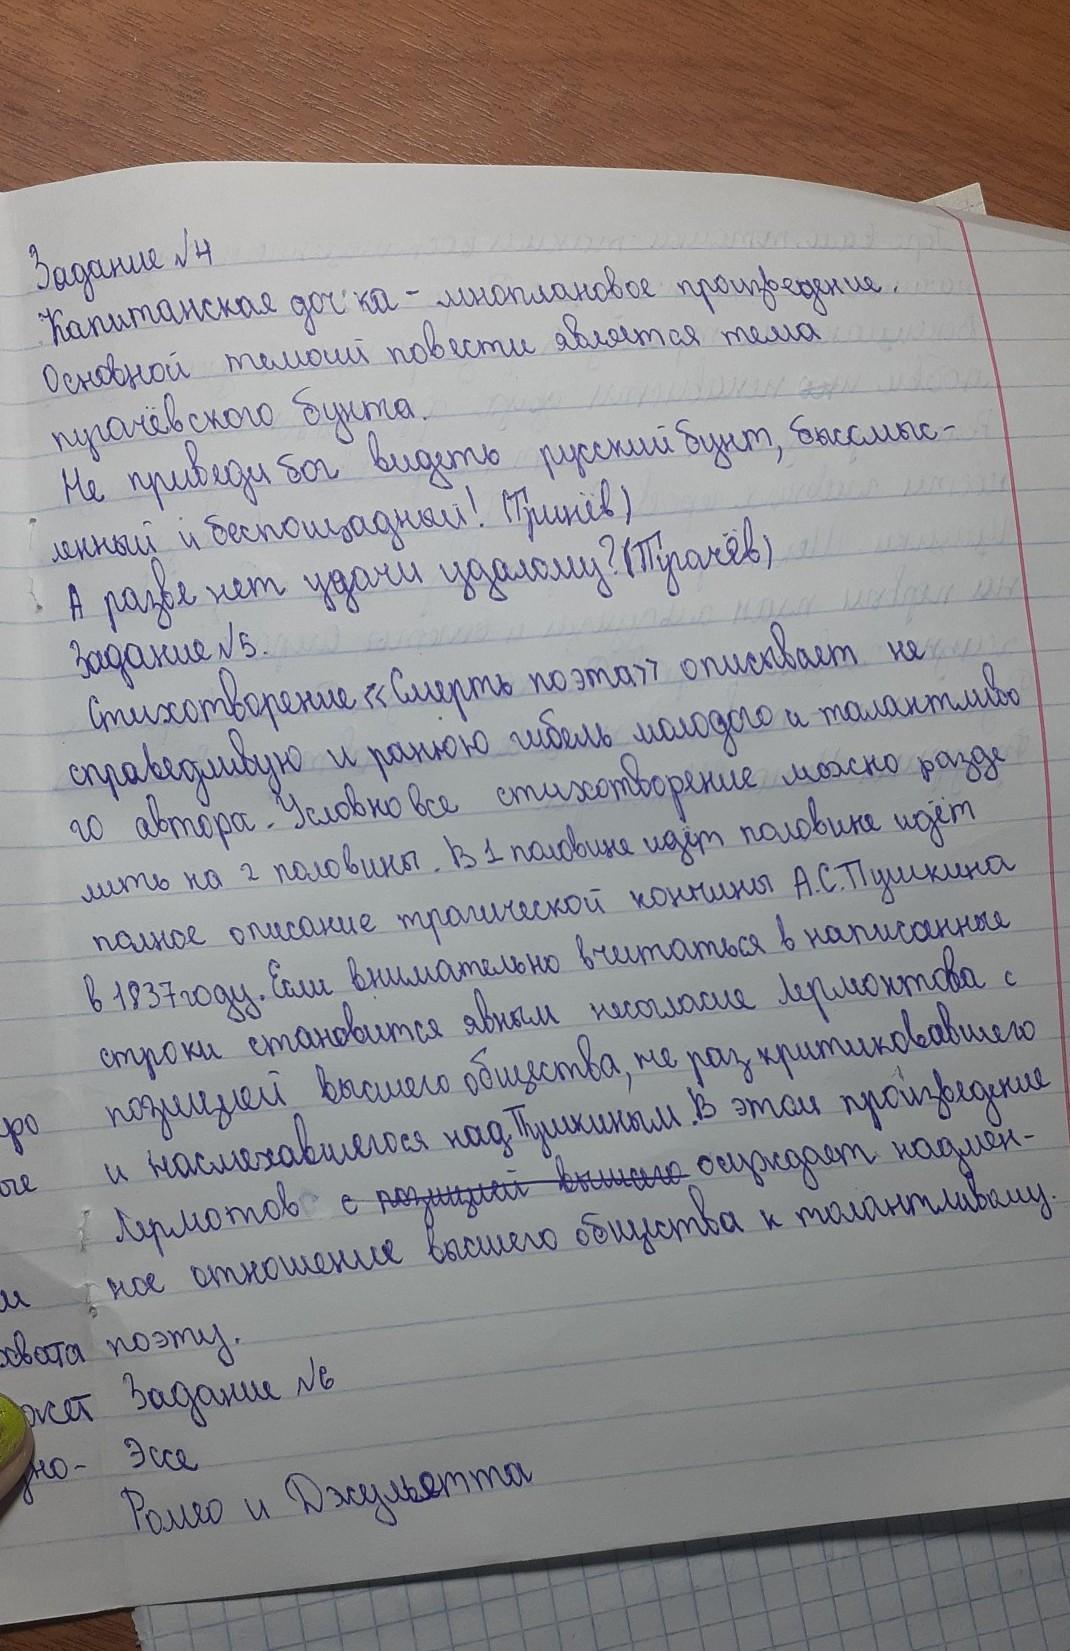 Задание №4
Капитанская дочка - мноплановое произведение.
Основной темой повести является тема
пугачёвского бунта.
Не приведи бог видеть русский бунт, бысмыс-
ленный и беспощадный! (Гринёв)
А разве нет удачи удалому? (Пугачёв)
Задание №5.
Стихотворение «Смерть поэта» описывает не
справедливую и раннюю гибель молодого и талантливо
го автора. Условно все стихотворение можно разде
лить на 2 половины. В 1 половине идёт половине идёт
полное описание трагической кончины А.С.Пушкина
в 1837 году. Если внимательно вчитаться в написанные
строки становится явным несогласие Лермонтова с
позицией высшего общества, не раз критиковавшего
и насмехавшегося над Пушкиным. В этом произведение
Лермотов с позицией высшего осуждает надмен-
ное отношение высшего общества к талантливому
поэту.
Задание №6
Эссе
Ромео и Джульетта
ро
ые
м
хвата
ожет
но-